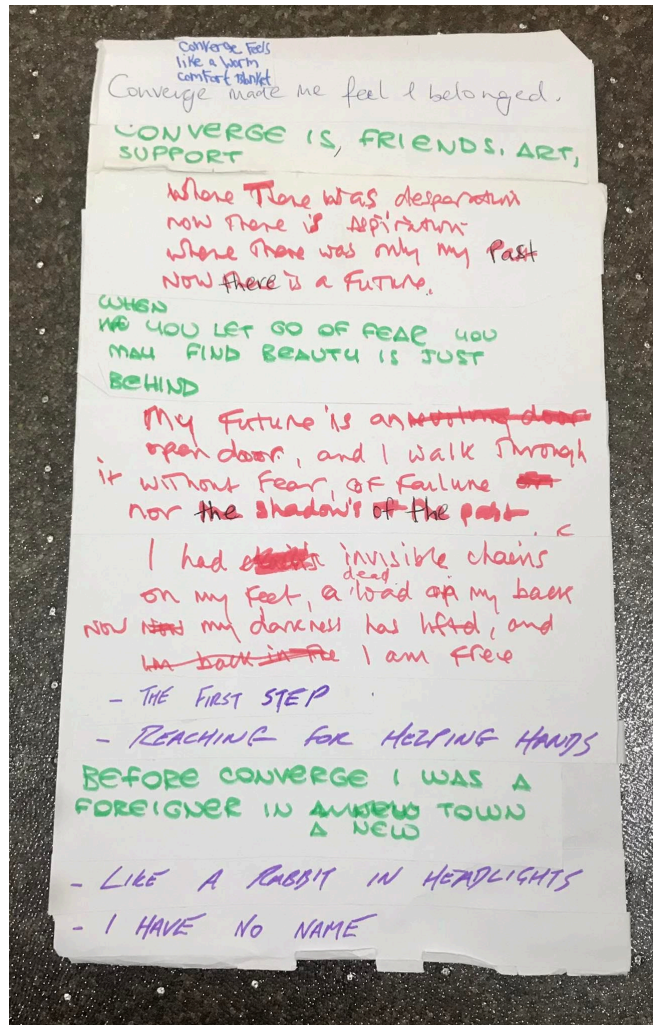 Converge Feels
like a warm
comfort blanket
Converge made me feel I belonged.
CONVERGE IS, FRIENDS, ART,
SUPPORT
where There was desperation
now There is Aspiration
where There was only my Past
NOW there is a Future.
WHEN
YOU LET GO OF FEAR YOU
MAY FIND BEAUTY IS JUST
BEHIND
My Future is an
open door, and I walk Through
it without Fear, of Failure
nor the shadow's of the past
I had invisible chains
on my feet, a dead load on my back
NOW my darkness has lifted, and
I am Free
- THE FIRST STEP
- REACHING FOR HELPING HANDS
BEFORE CONVERGE I WAS A
FOREIGNER IN TOWN
A NEW
- LIKE A RABBIT IN HEADLIGHTS
- I HAVE NO NAME